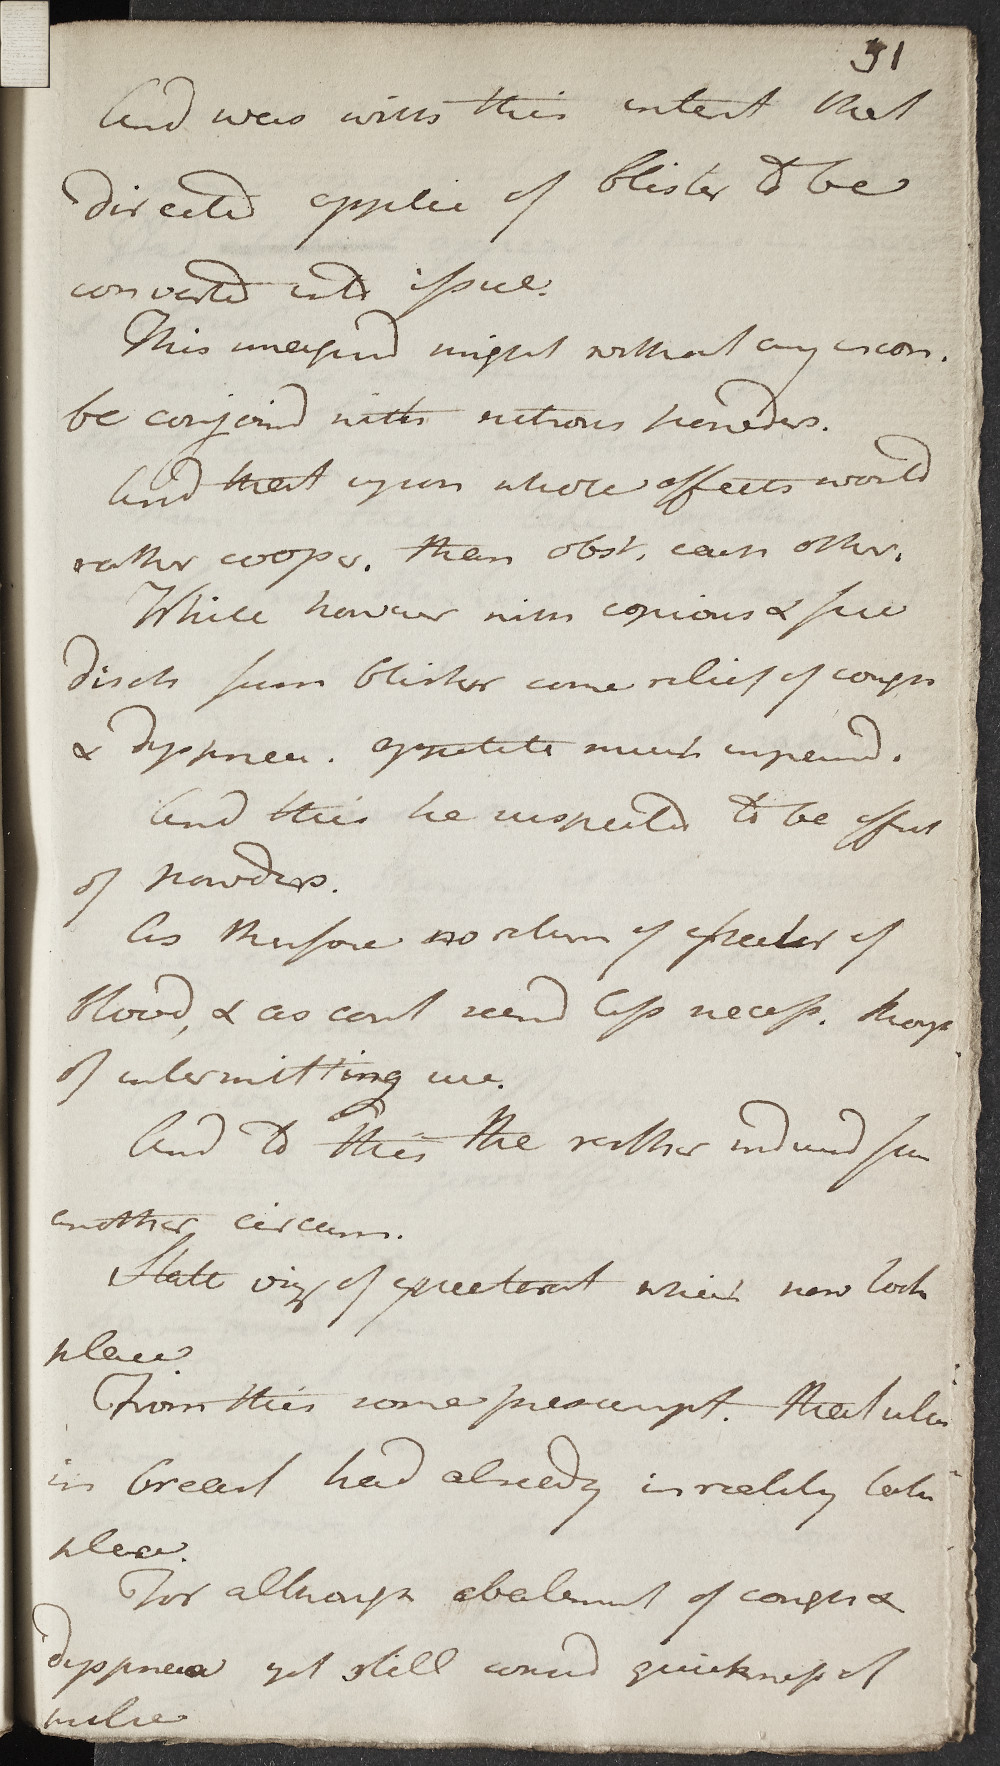 51
And was with this intent that
directed applic of blister to be
converted into issue.
This imagind might without any incon.
be conjoind with nitrous powders.
And that upon whole effects would
rather cooper. than obst. each other.
While however with copious & free
disch from blister came relief of cough
& dyspnea. appetite much impaird.
And this he suspected to be effect
of powders.
As therefore no return of spitting of
blood, & as cont seemd less necess. thoug
of intermitting use.
And to this the rather inducd from
another circum.
State viz of expectorat which now took
place
From this some presumpt. that ulcer
in breast had already in reality taken
place.
For although abatement of cough &
dyspnea yet still contd quickness of
pulse